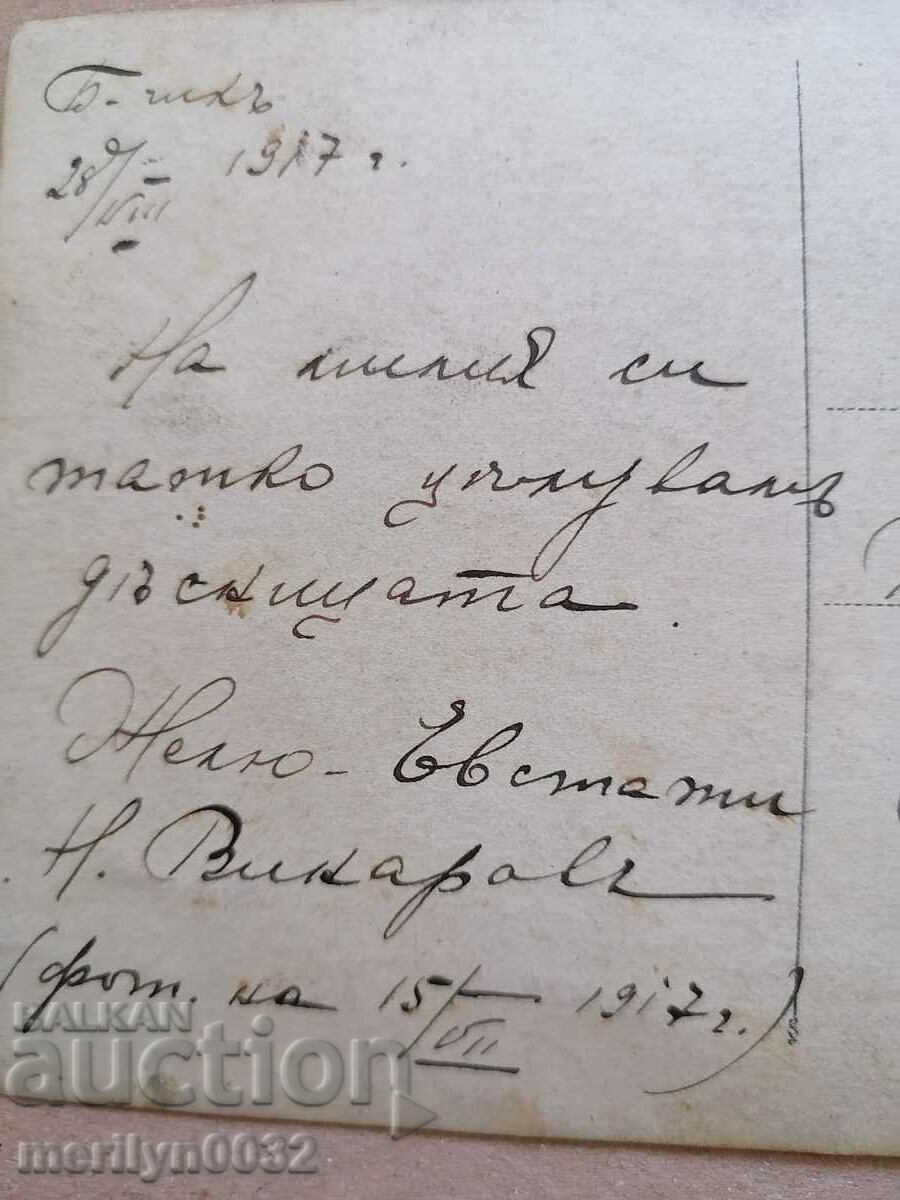 Б-чикъ
28/VIII 1917 г.
На милия си
татко цѣлувамъ
дѣсницата.
Желю - Евстати
Н. Викаровъ
(фот. на 15/VII 1917 г.)
BALKAN
auction
merilyn0032